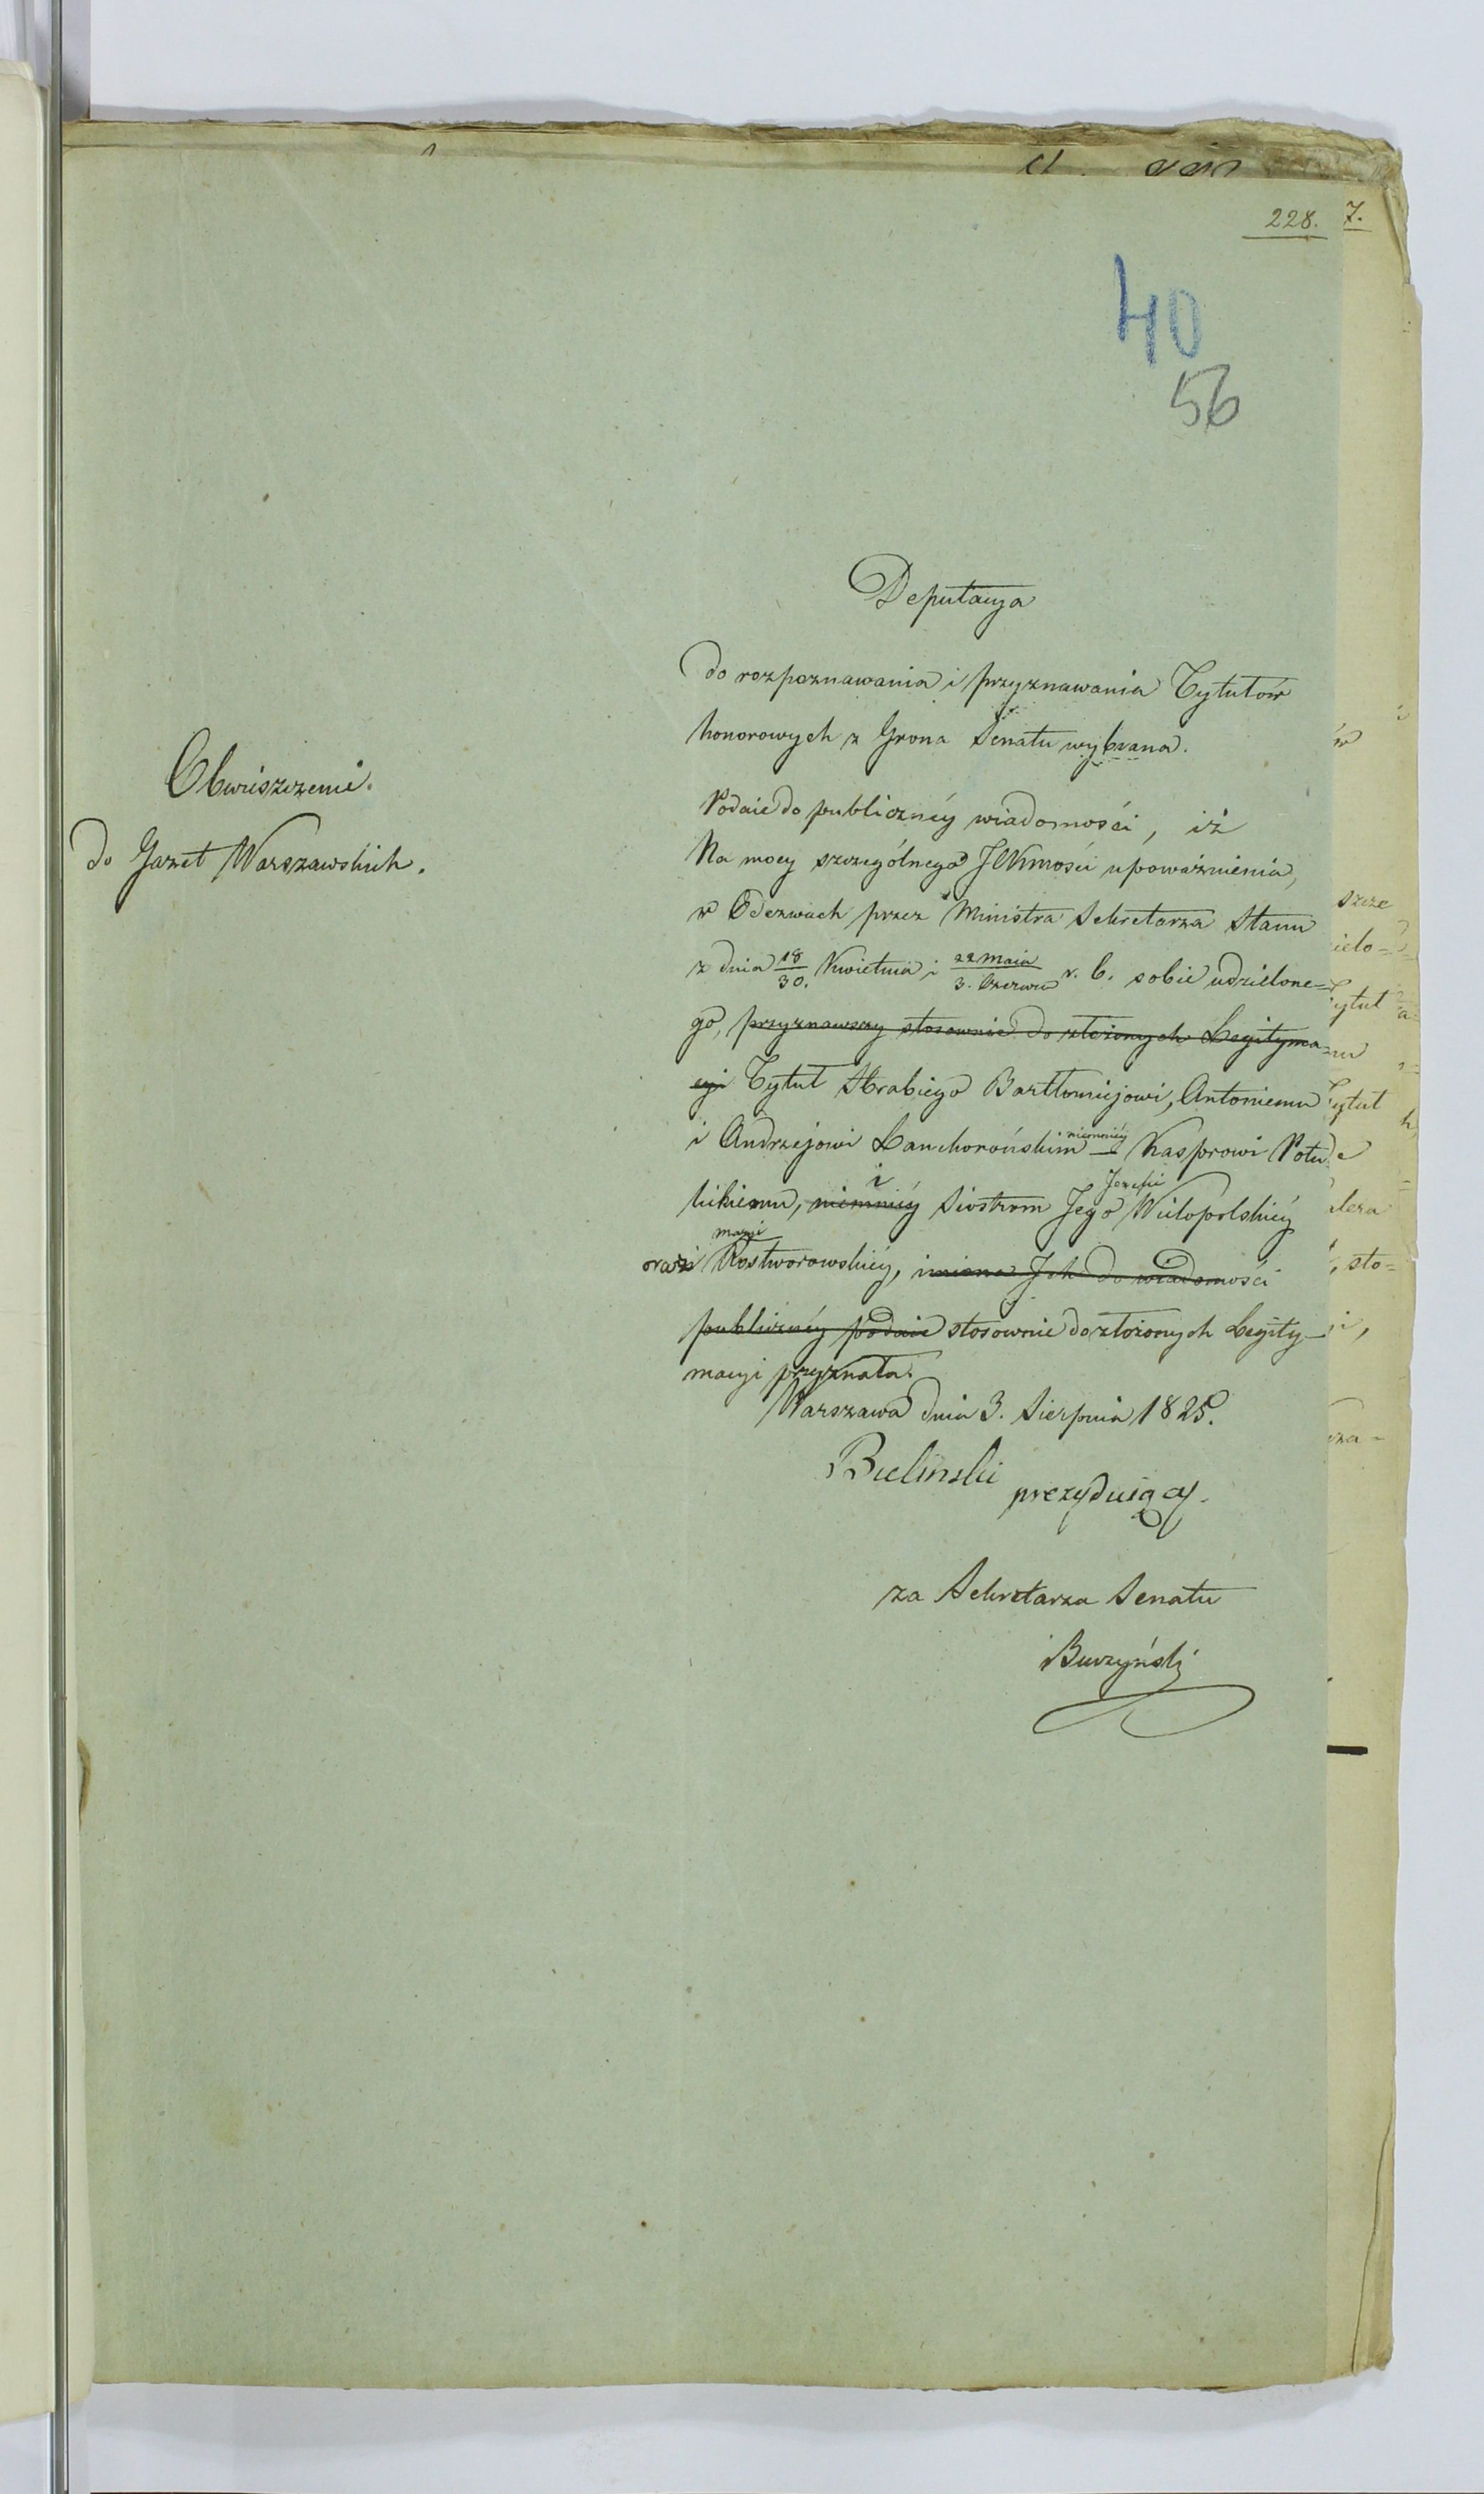 228. 7.
40
56
Deputacya
do rozpoznawania i przyznawania Tytułów
honorowych z Grona Senatu wybrana.
Obwieszczenie.
do Gazet Warszawskich.
Podaie do publicznéy wiadomości, iż
Na mocy szczególnego JKMości upoważnienia,
w Odezwach przez Ministra Sekretarza Stanu
z dnia 18/30. Kwietnia i 22 Maia/3. Czerwca r. b. sobie udzielone-
go, przyznawszy stosownie do złożonych Legityma-
cyi Tytuł Hrabiego Bartłomiejowi, Antoniemu
i Andrzejowi Lanckorońskim niemniéy Kasprowi Potu
lickiemu, niemniéy i Siostrom Jego Jozefie Wielopolskiéy
oraz Maryi Rostworowskiéy, imiona Ich do wiadomości
publicznéy podaie stosownie do złożonych Legity-
macyi przyznała.
Warszawa dnia 3. Sierpnia 1825.
Bielinski
prezyduiący.
za Sekretarza Senatu
Burzyński